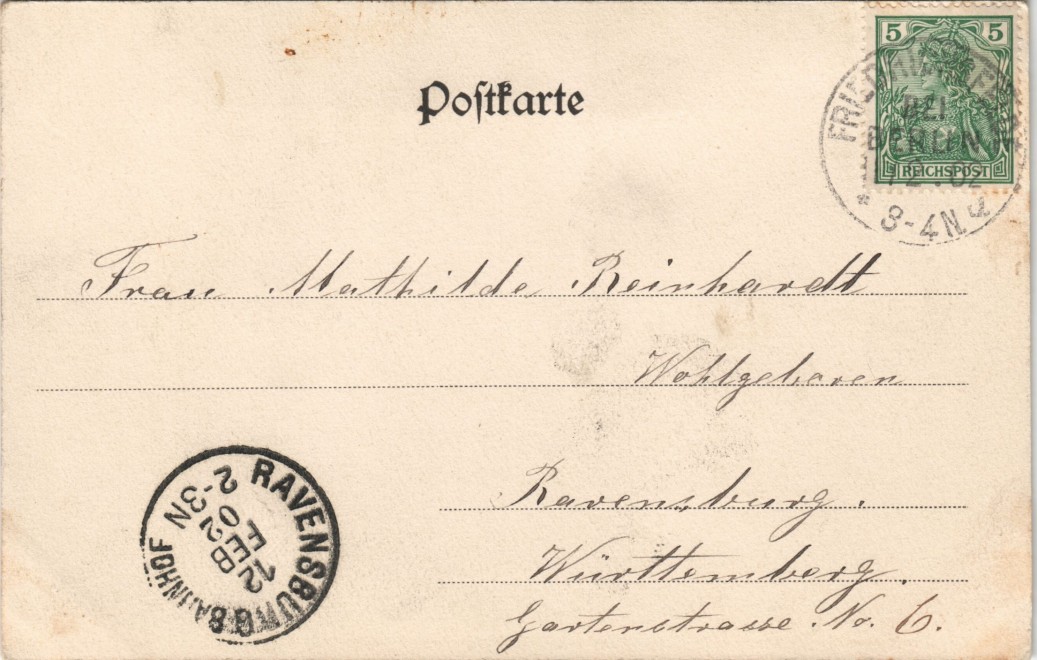 5 5
REICHSPOST
BEI
BERLIN
2.02
3-4N
Postkarte
Frau Mathilde Reinhardt
Wohlgeboren
Ravensburg.
Württemberg.
Gartenstrasse No. 6.
RAVENSBURG
BAHNHOF
12
FEB
02
2-3N